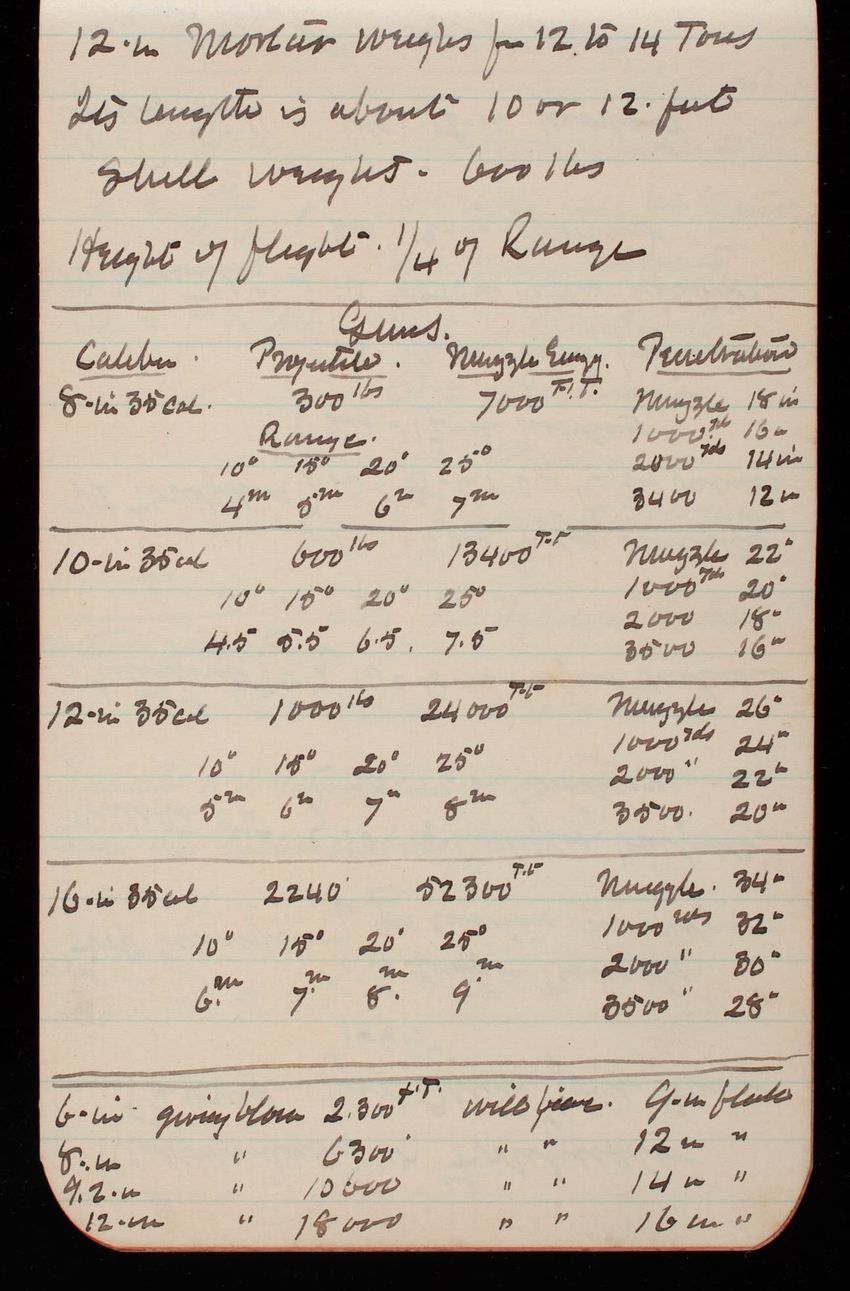 12-in Mortar weighs fm 12 to 14 Tons
Its length is about 10 or 12. feet
Shell weight. 600 lbs
Height of flight. 1/4 of Range
Guns.
Caliber. Projectile. Muzzle Energy. Penetration
8-in 35 Cal. 300 lbs 7000 F.T. Muzzle 18 in
Range. 1000 yds 16 in
10° 15° 20° 25° 2000 yds 14 in
4m 5m 6m 7m 3400 12 in
10-in 35 cal 600 lbs 13400 F.T. Muzzle 22"
10° 15° 20° 25° 1000 yds 20"
2000 18"
4.5 5.5 6.5. 7.5 3500 16"
12-in 35 cal 1000 lbs 24000 F.T. Muzzle 26"
10° 15° 20° 25° 1000 yds 24"
2000 " 22"
5m 6m 7m 8m 3500. 20"
16-in 35 cal 2240 52300 F.T. Muzzle. 34"
10° 15° 20° 25° 1000 yds 32"
2000 " 30"
6.m 7.m 8.m 9m 3500 " 28"
6-in giving blow 2.300 F.T. will pierce. 9-in plate
8.in " 6300 " " 12 in "
9.2-in " 10600 " " 14 in "
12-in " 18000 " " 16 in "